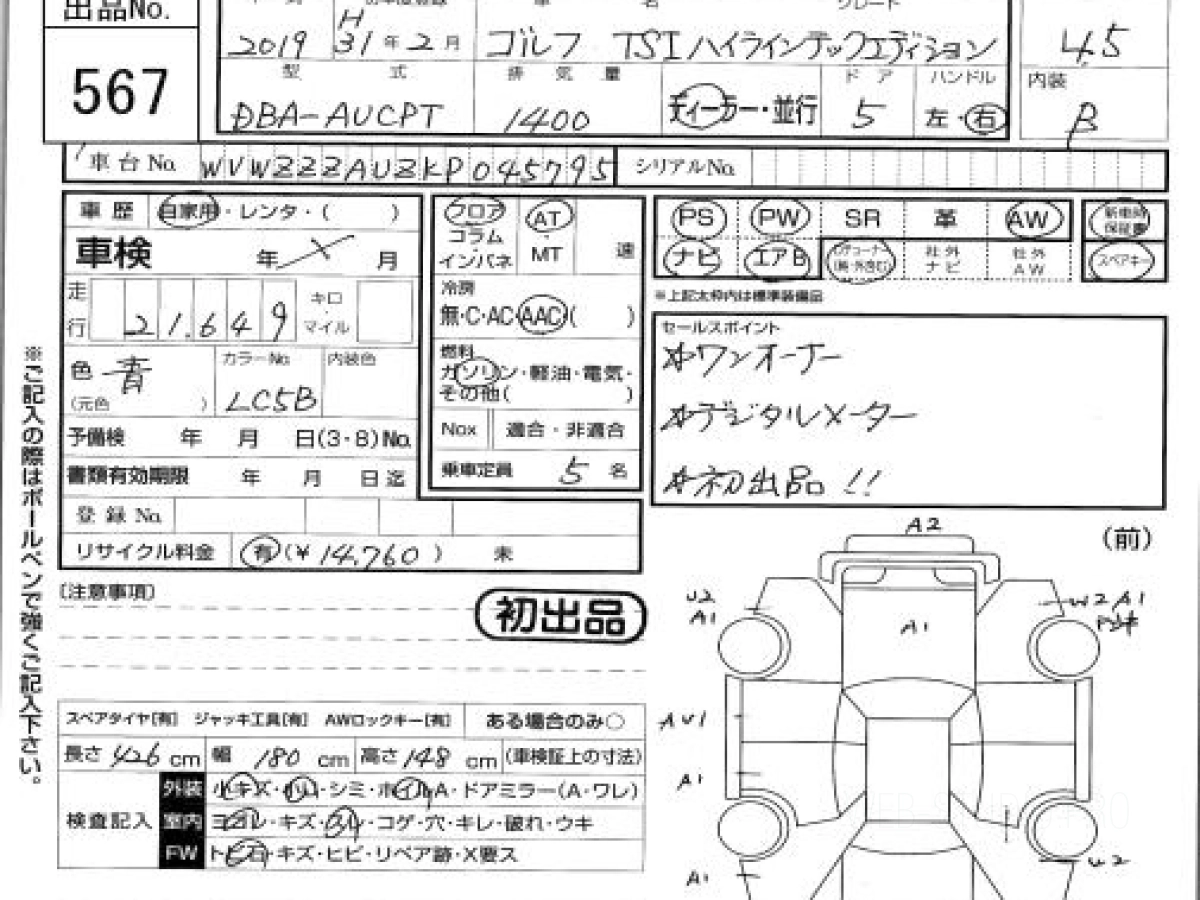 出品No.
567
2019 H31年2月 ゴルフ TSIハイラインテックエディション 4.5
型 式 排 気 量 ドア ハンドル 内装
DBA-AUCPT 1400 ディーラー・並行 5 左・右 B
車台No. WVWZZZAUZKP045795 シリアルNo.
車歴 自家用・レンタ・( )
車検 年 月
走行 21,649 キロ・マイル
色 青 カラーNo. LC5B 内装色
(元色 )
予備検 年 月 日(3・8)No.
書類有効期限 年 月 日迄
登録No.
リサイクル料金 有(¥14,760) 未
フロア
コラム
インパネ
AT
MT
速
冷房
無・C・AC・AAC・( )
燃料
ガソリン・軽油・電気・
その他( )
Nox 適合・非適合
乗車定員 5 名
PS PW SR 革 AW 新車時保証書
ナビ エアB TVチューナー 社外ナビ 社外AW スペアキー
※上記太枠内は標準装備品
セールスポイント
☆ワンオーナー
☆デジタルメーター
☆初出品!!
※ご記入の際はボールペンで強くご記入下さい。
〔注意事項〕
初出品
スペアタイヤ[有] ジャッキ工具[有] AWロックキー[有] ある場合のみ○
長さ 426 cm 幅 180 cm 高さ 148 cm (車検証上の寸法)
検査記入
外装 小キズ・小凹・シミ・ホイルA・ドアミラー(A・ワレ)
室内 ヨゴレ・キズ・スレ・コゲ・穴・キレ・破れ・ウキ
FW トビ石・キズ・ヒビ・リペア跡・X要ス
(前)
A2
U2
A1
A1
W2 A1
AU1
A1
A1
U2